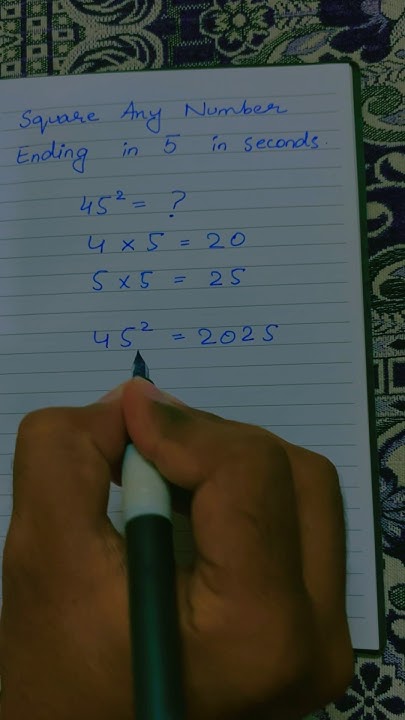 Square Any Number
Ending in 5 in seconds.
45² = ?
4 × 5 = 20
5 × 5 = 25
45² = 2025